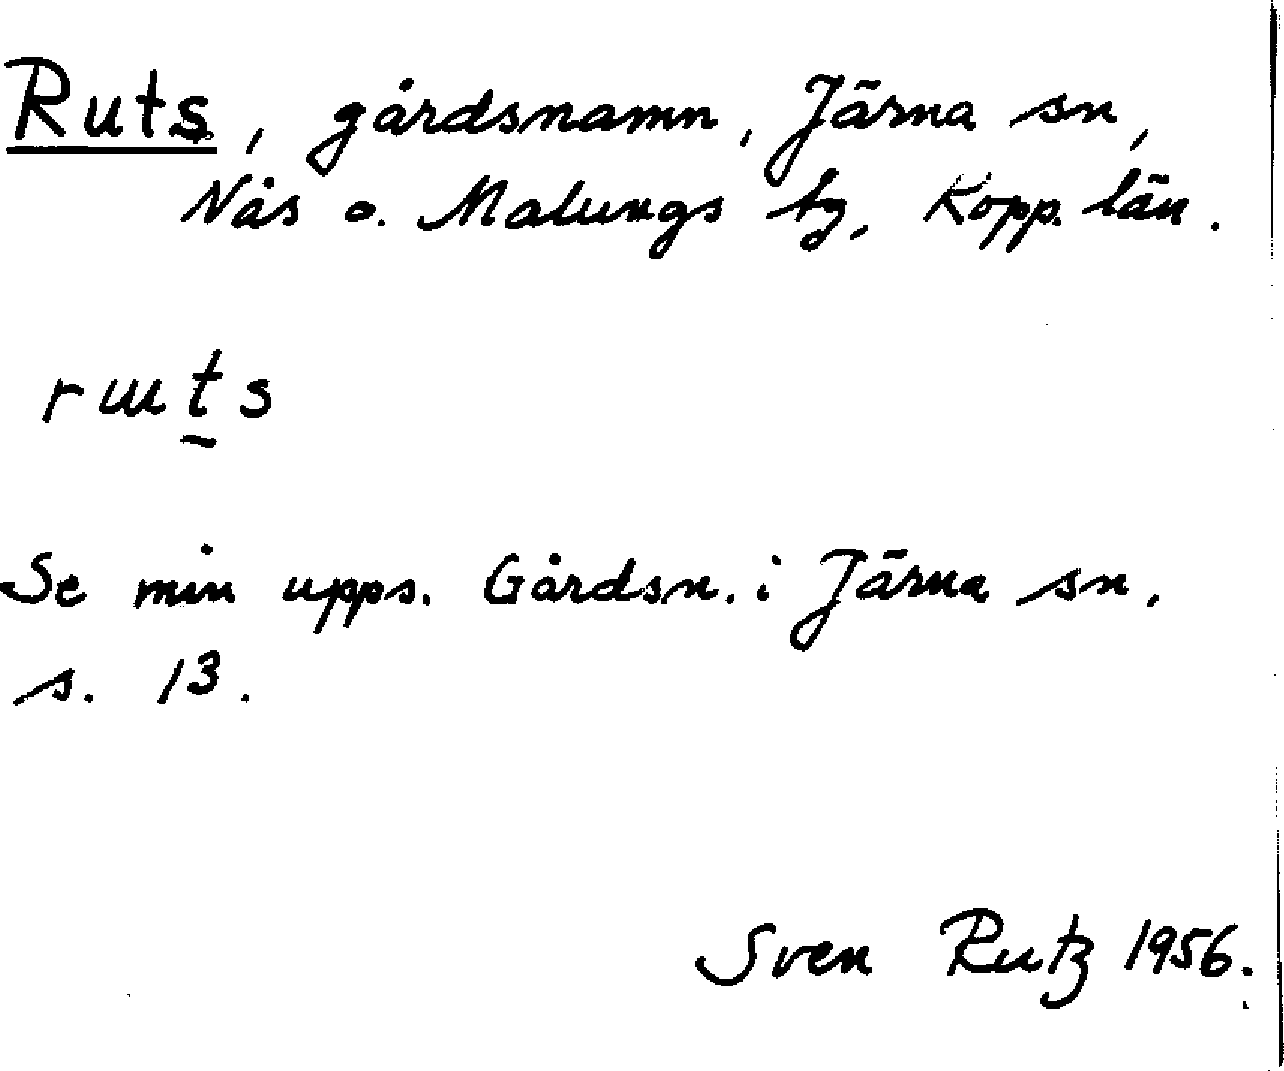 Ruts, gårdsnamn, Järna sn,
Nås o. Malungs tg, Kopp. län.
rɯt̰s
Se min upps. Gårdsn. i Järna sn.
s. 13.
Sven Rutz 1956.